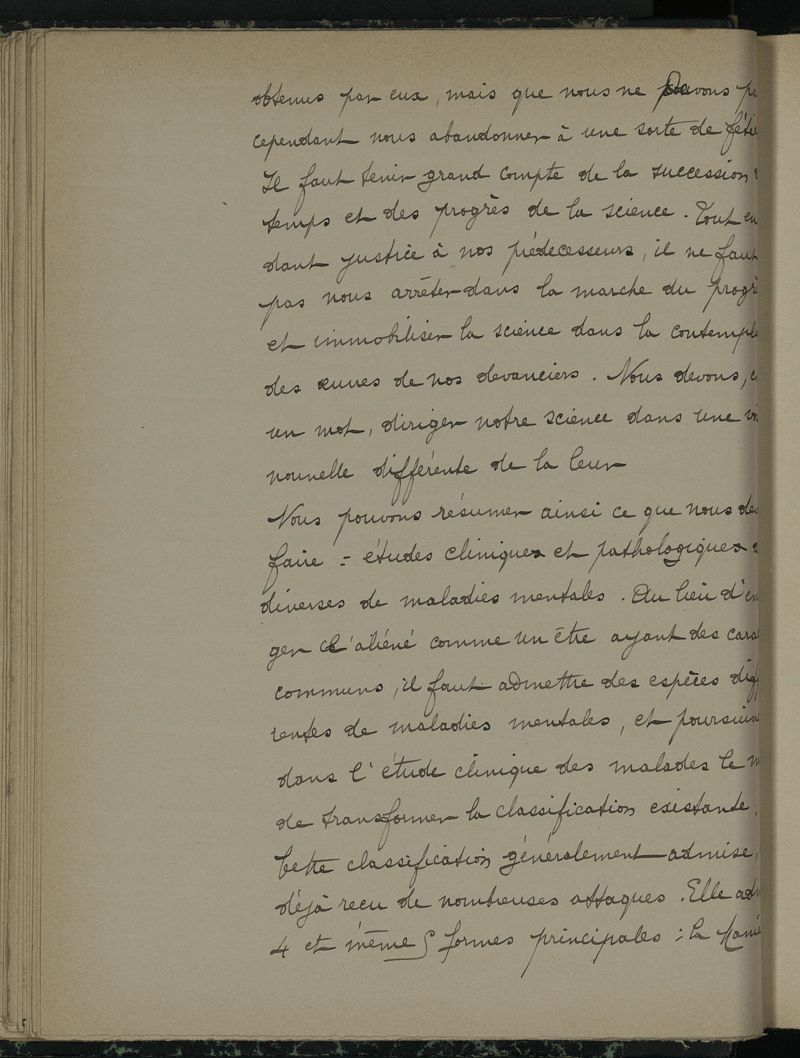 obtenus par eux, mais que nous ne pouvons p
cependant nous abandonner à une sorte de féti
Il faut tenir grand compte de la succession
temps et des progrès de la science. Tout en
dant justice à nos prédecesseurs, il ne faut
pas nous arrêter dans la marche du progrè
et immobiliser la science dans la contempl
des œuvres de nos devanciers. Nous devons, e
un mot, diriger notre science dans une
nouvelle différente de la leur
Nous pouvons résumer ainsi ce que nous de
faire = études cliniques et pathologiques
diverses de maladies mentales. Au lieu d'en
ger l'aliéné comme un être ayant des cara
communs, il faut admettre des espèces diff
rentes de maladies mentales, et poursuiv
dans l'étude clinique des malades le m
de transformer la classification existante.
Cette classification généralement admise,
déjà recu de nombreuses attaques. Elle adm
4 et même 5 formes principales : la Manie